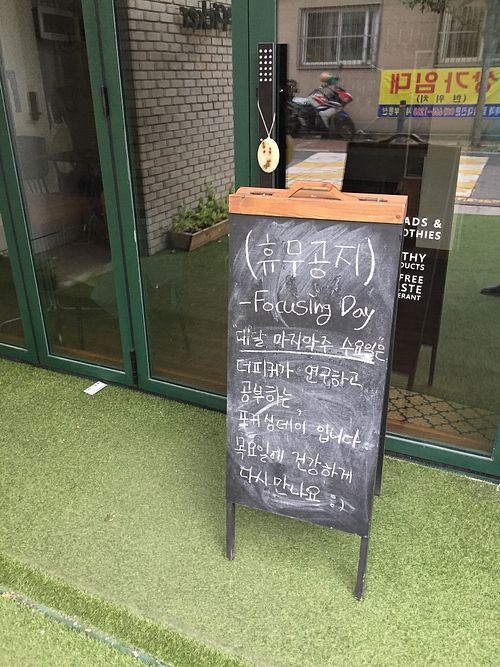 (휴무공지)
-Focusing Day
"매달 마지막주 수요일"은
더피커가 연구하고
공부하는,
포커싱데이 입니다.
목요일에 건강하게
다시 만나요 :)
ADS &
OTHIES
THY
DUCTS
FREE
STE
ERANT
상가임대
(현 위치)